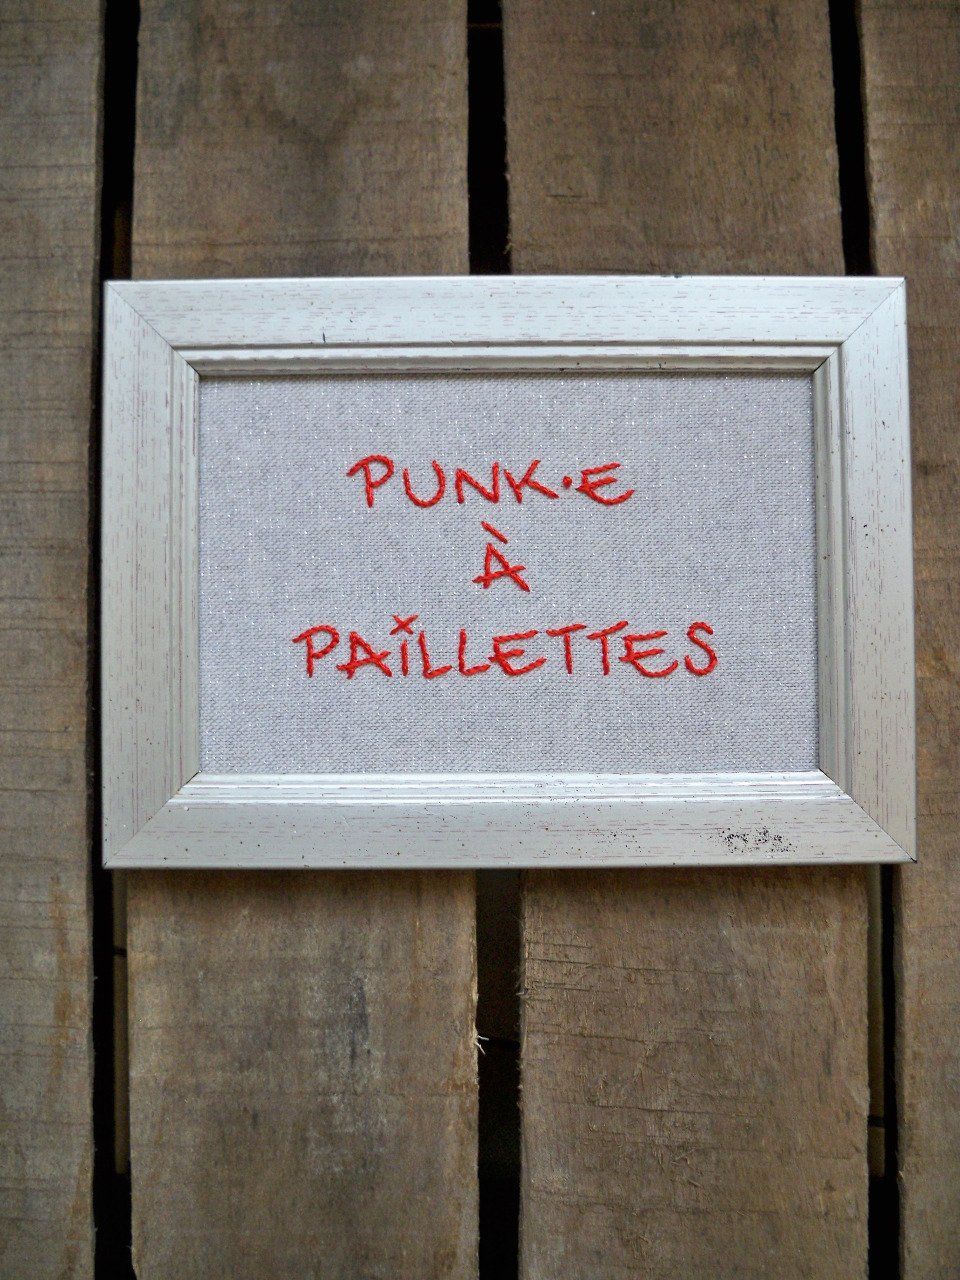 PUNK·E
À
PAiLLETTES